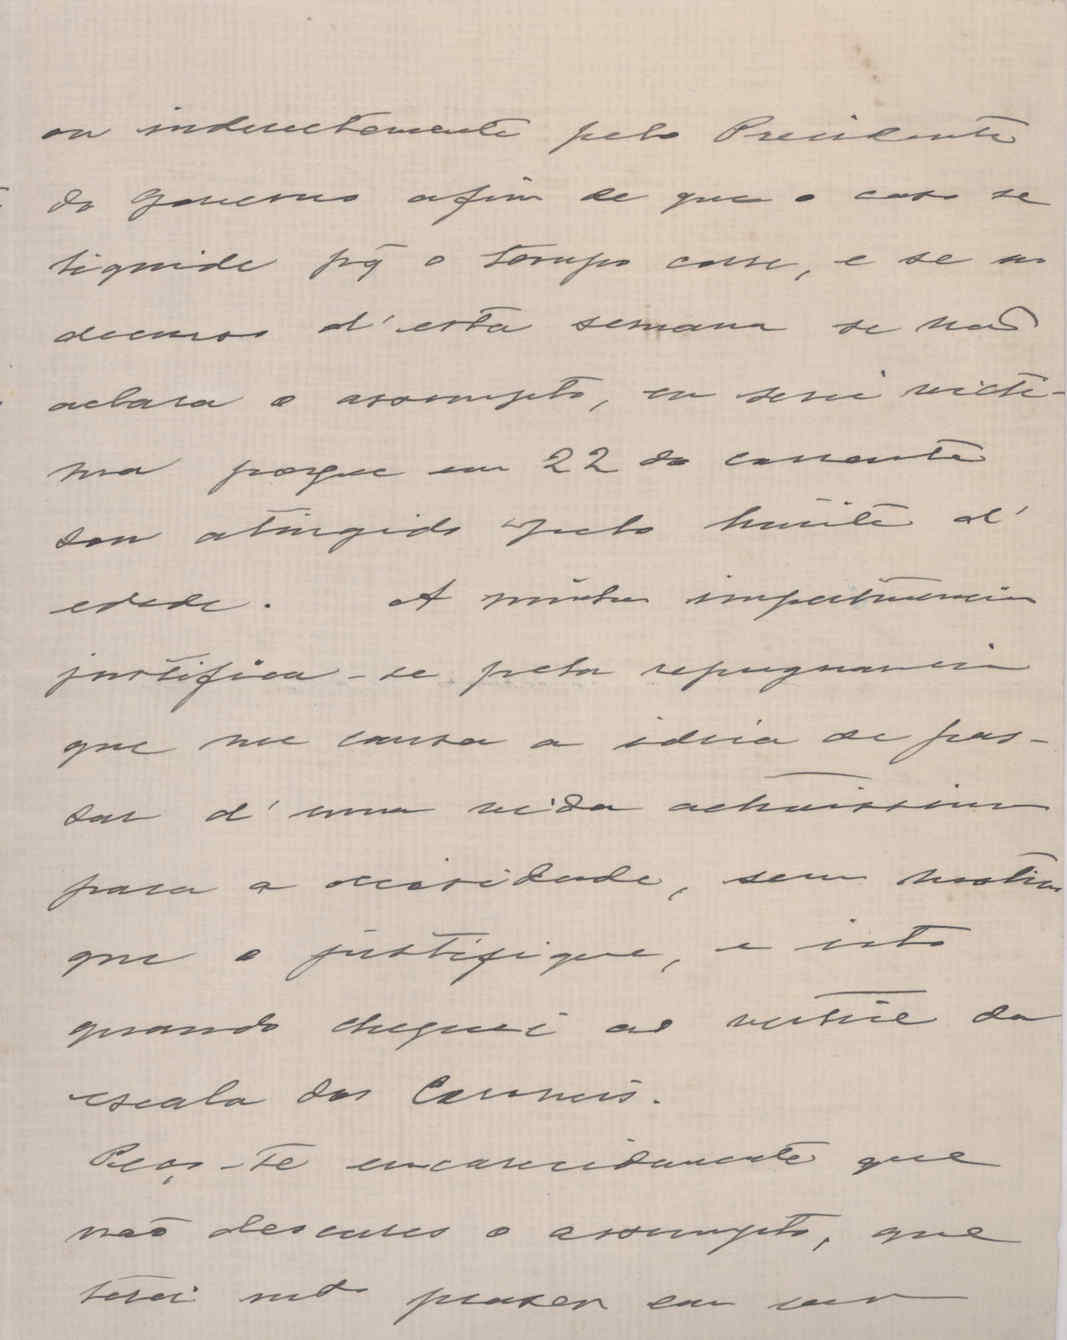 ou indirectamente pelo Presidente
do Governo afim de que o caso se
liquide pq̃ o tempo corre, e se no
decurso d'esta semana se não
aclara o assumpto, eu serei victi-
ma porque em 22 do corrente
sou atingido pelo limite d'
edade. A minha impertinencia
justifica-se pela repugnancia
que me causa a ideia de pas-
sar d'uma vida activissima
para a ociosidade, sem motivo
que o justifique, e isto
quando cheguei ao vertice da
escala dos Coroneis.
Peço-te encarecidamente que
não descures o assumpto, que
terei mto prazer em